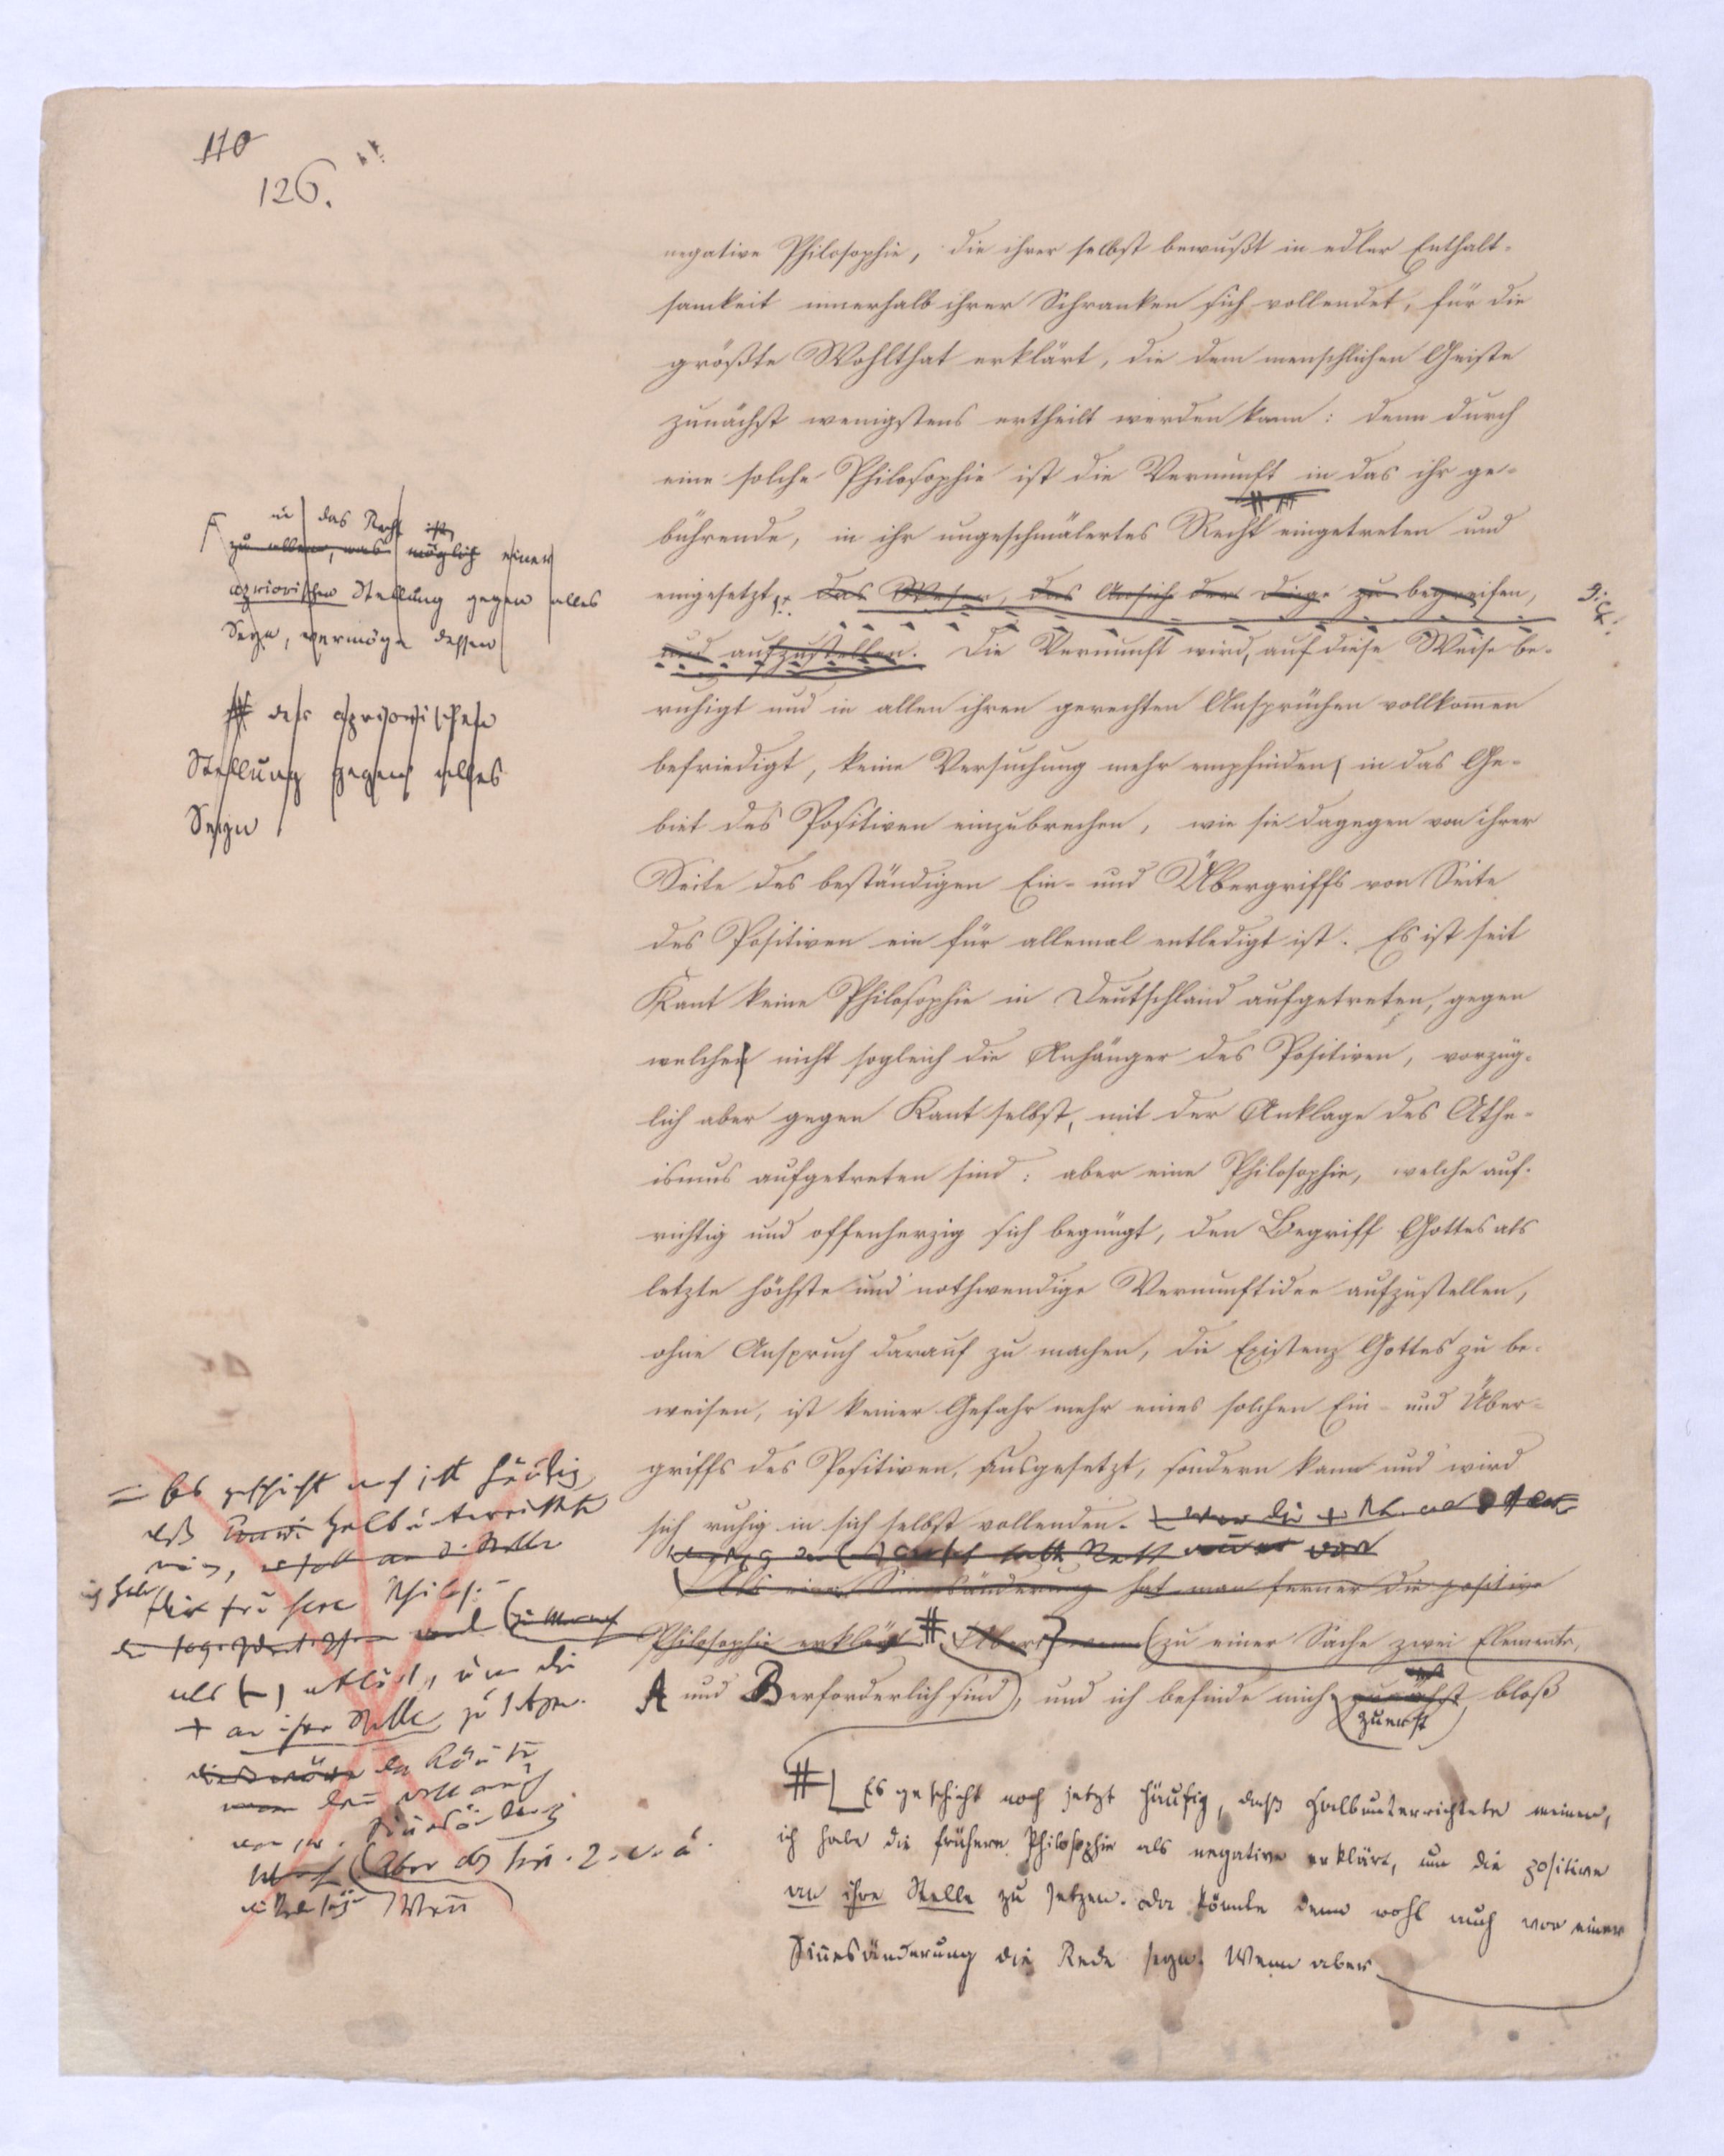 110
126.
negative Philosophie, die ihrer selbst bewußt in edler Enthalt-
samkeit innerhalb ihrer Schranken sich vollendet, für die
größte Wohlthat erklärt, die dem menschlichen Geiste
zunächst wenigstens ertheilt werden kann: denn durch
eine solche Philosophie ist die Vernunft in das ihr ge-
bührende, in ihr ungeschmälertes Recht eingetreten und
eingesetzt, das Wesen, das Ansich der Dinge zu begreifen,
und aufzustellen. Die Vernunft wird, auf diese Weise be-
ruhigt und in allen ihren gerechten Ansprüchen vollkom̄en
befriedigt, keine Versuchung mehr empfinden, in das Ge-
biet des Positiven einzubrechen, wie sie dagegen von ihrer
Seite des beständigen Ein- und Übergriffs von Seite
des Positiven ein für allemal entledigt ist. Es ist seit
Kant keine Philosophie in Deutschland aufgetreten, gegen
welche nicht sogleich die Anhänger des Positiven, vorzüg-
lich aber gegen Kant selbst, mit der Anklage des Athe-
ismus aufgetreten sind: aber eine Philosophie, welche auf-
richtig und offenherzig sich begnügt, den Begriff Gottes als
letzte höchste und nothwendige Vernunftidee aufzustellen,
ohne Anspruch darauf zu machen, die Existenz Gottes zu be-
weisen, ist keiner Gefahr mehr eines solchen Ein- und Über-
griffs des Positiven, ausgesetzt, sondern kann und wird
sich ruhig in sich selbst vollenden.
Als eine Sinnesänderung hat man ferner die positive
Philosophie erklärt # Aber wenn (zu einer Sache zwei Elemente,
A und B erforderlich sind), und ich befinde mich zunächst bloß
zuerst
# Es geschieht noch jetzt häufig, daß Halbunterrichtete meinen,
ich habe die frühere Philosophie als negative erklärt, um die positive
an ihre Stelle zu setzen. Da könnte denn wohl auch von einer
Sin̄esänderung die Rede seyn. Wenn aber
in das Recht ist
zu allem, was möglich einer
apriorischen Stellung gegen alles
Seyn, vermöge dessen
# der apriorischen
Stellung gegen alles
Seyn
= Es geschieht noch jetzt häufig
daß Halbunterrichtete
ich habe die frühere Philos.
als (–) erklärt, um die
+ an ihre Stelle zu setzen.
da könnte
den̄ wohl auch
von Sinesänderung
(Aber
Wen̄